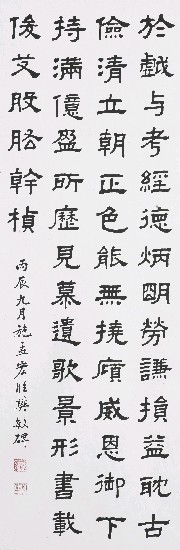 於戲与考經德炳明勞謙損益耽古
儉清立朝正色能無撓廎威恩御下
持滿億盈所歷見慕遺歌景形書載
俊艾股肱幹楨
丙辰九月施孟宏臨樊敏碑